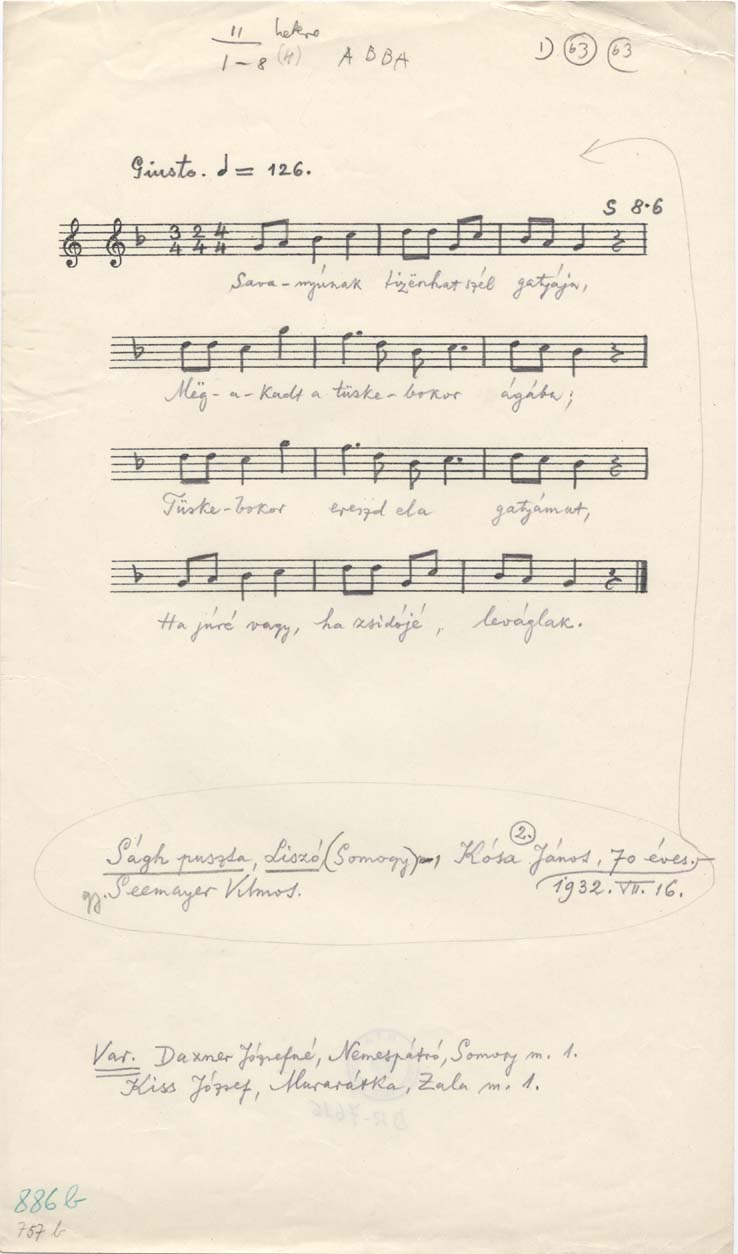 II hetero
1-8 (4) A B B A 1) 63 63
Giusto. = 126.
S 8.6
3 2 4
4 4 4
Sava-nyúnak tizënhat szél gatyája,
Mëg-a-kadt a tüske-bokor ágába;
Tüske-bokor ereszd el a gatyámat,
Ha júré vagy, ha zsidójé, leváglak.
2.
Ságh puszta, Liszó (Somogy), Kósa János, 70 éves.
gy. Seemayer Vilmos. 1932. VII. 16.
Var. Daxner Józsefné, Nemespátró, Somogy m. 1.
Kiss József, Murarátka, Zala m. 1.
886 b
757 b